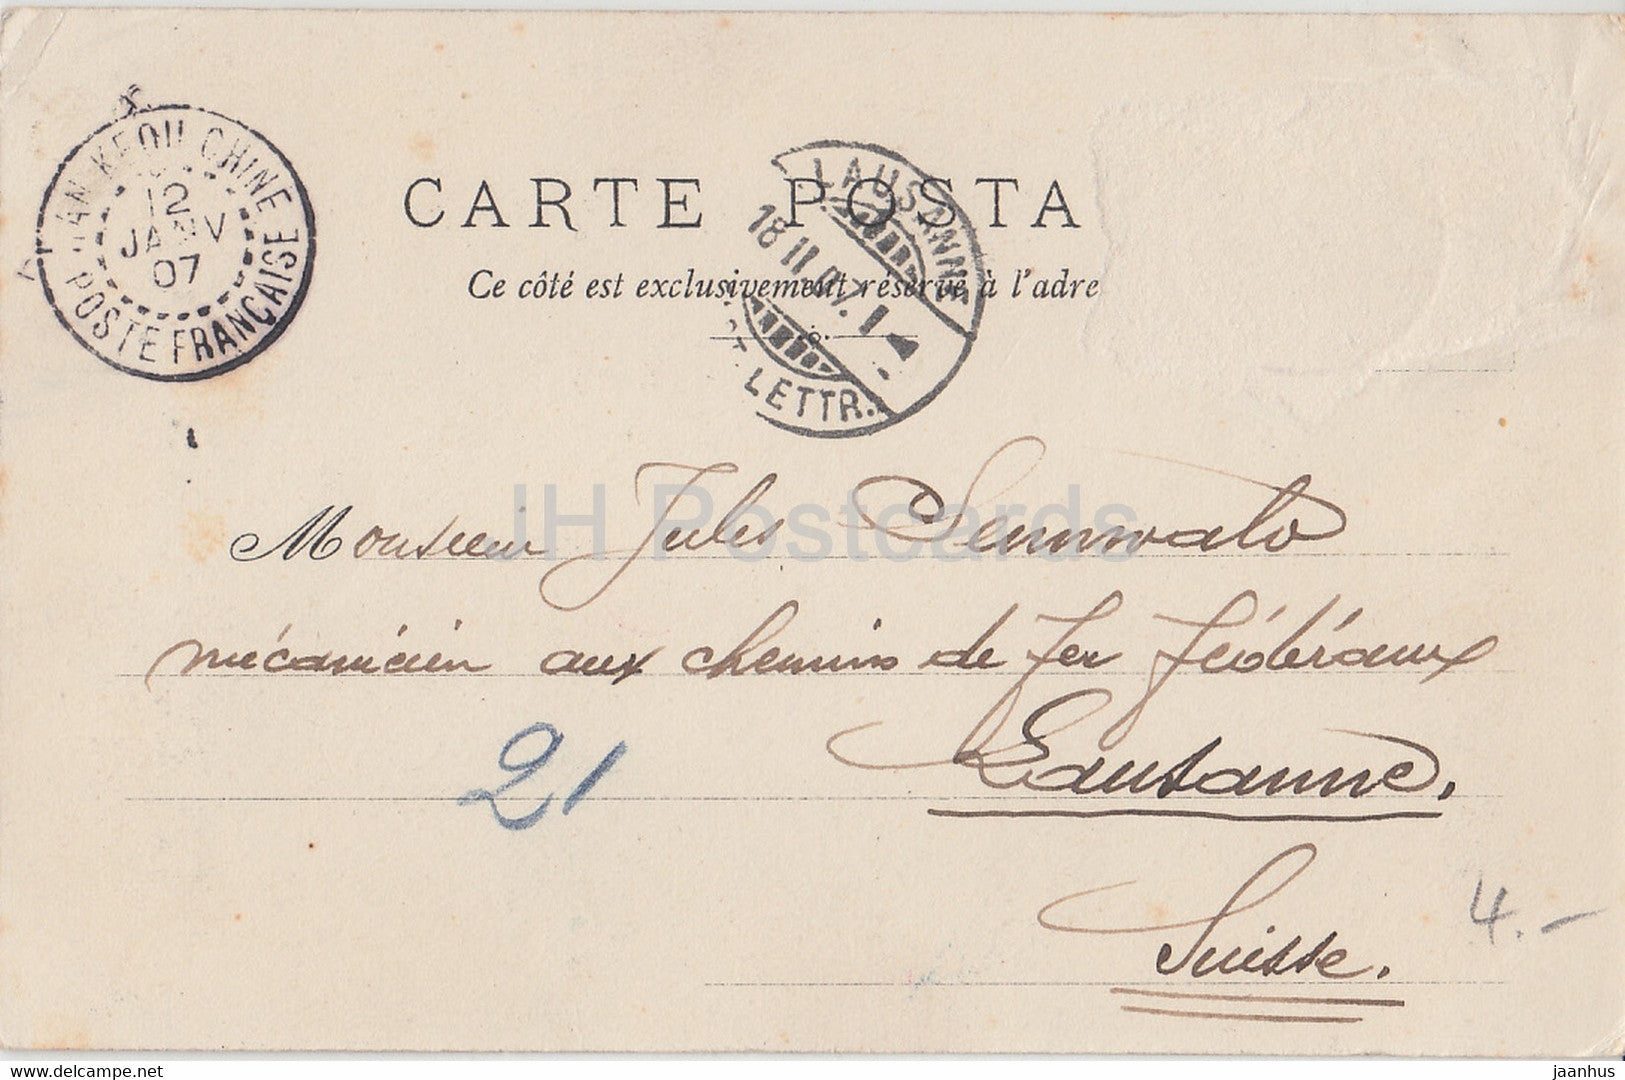 HAN-KEOU CHINE
12
JANV
07
POSTE FRANÇAISE
CARTE POSTA
LAUSANNE
18 II 07. 1
LETTR.
Ce côté est exclusivement réservé à l'adre
JH Postcards
Monsieur Jules Sennwald
mécanicien aux chemins de fer fédéraux
21
Lausanne.
Suisse.
4.-
delcampe.net
jaanhus